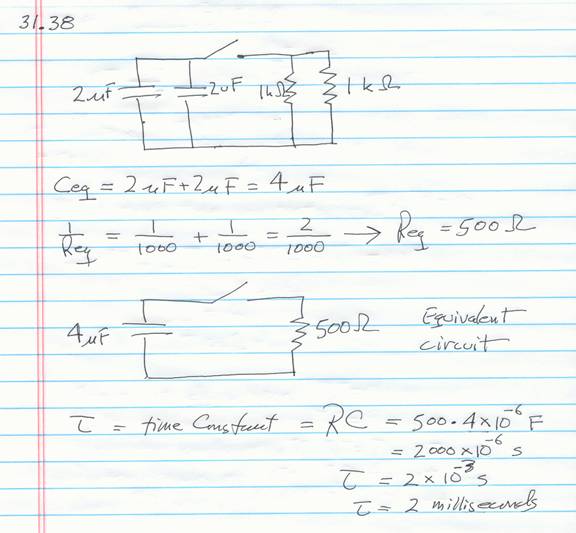 31.38
2μF 2μF 1kΩ 1kΩ
Ceq = 2μF+2μF = 4μF
1/Req = 1/1000 + 1/1000 = 2/1000 → Req = 500Ω
4μF 500Ω Equivalent
circuit
τ = time Constant = RC = 500·4×10⁻⁶ F
= 2000×10⁻⁶ s
τ = 2×10⁻³ s
τ = 2 milliseconds